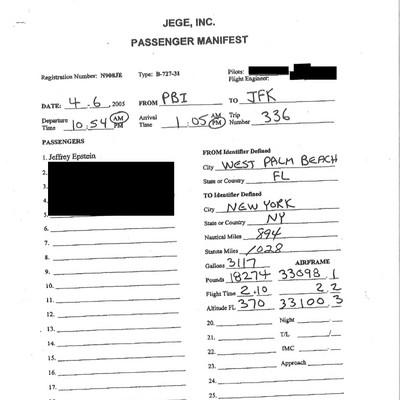 JEGE, INC.
PASSENGER MANIFEST
Registration Number: N908JE Type: B-727-31 Pilots:
Flight Engineer:
DATE: 4.6,2005 FROM PBI TO JFK
Departure Time 10:54 AM PM Arrival Time 1:05 AM PM Trip Number 336
PASSENGERS
1. Jeffrey Epstein
2.
3.
4.
5.
6.
7.
8.
9.
10.
11.
12.
13.
14.
15.
16.
17.
18.
19.
FROM Identifier Defined
City WEST PALM BEACH
State or Country FL
TO Identifier Defined
City NEW YORK
State or Country NY
Nautical Miles 894
Statute Miles 1028
Gallons 3117 AIRFRAME
Pounds 18274 33098.1
Flight Time 2.10 2.2
Altitude FL 370 33100.3
20. Night
21. T/L /
22. IMC
23. Approach
24.
25.